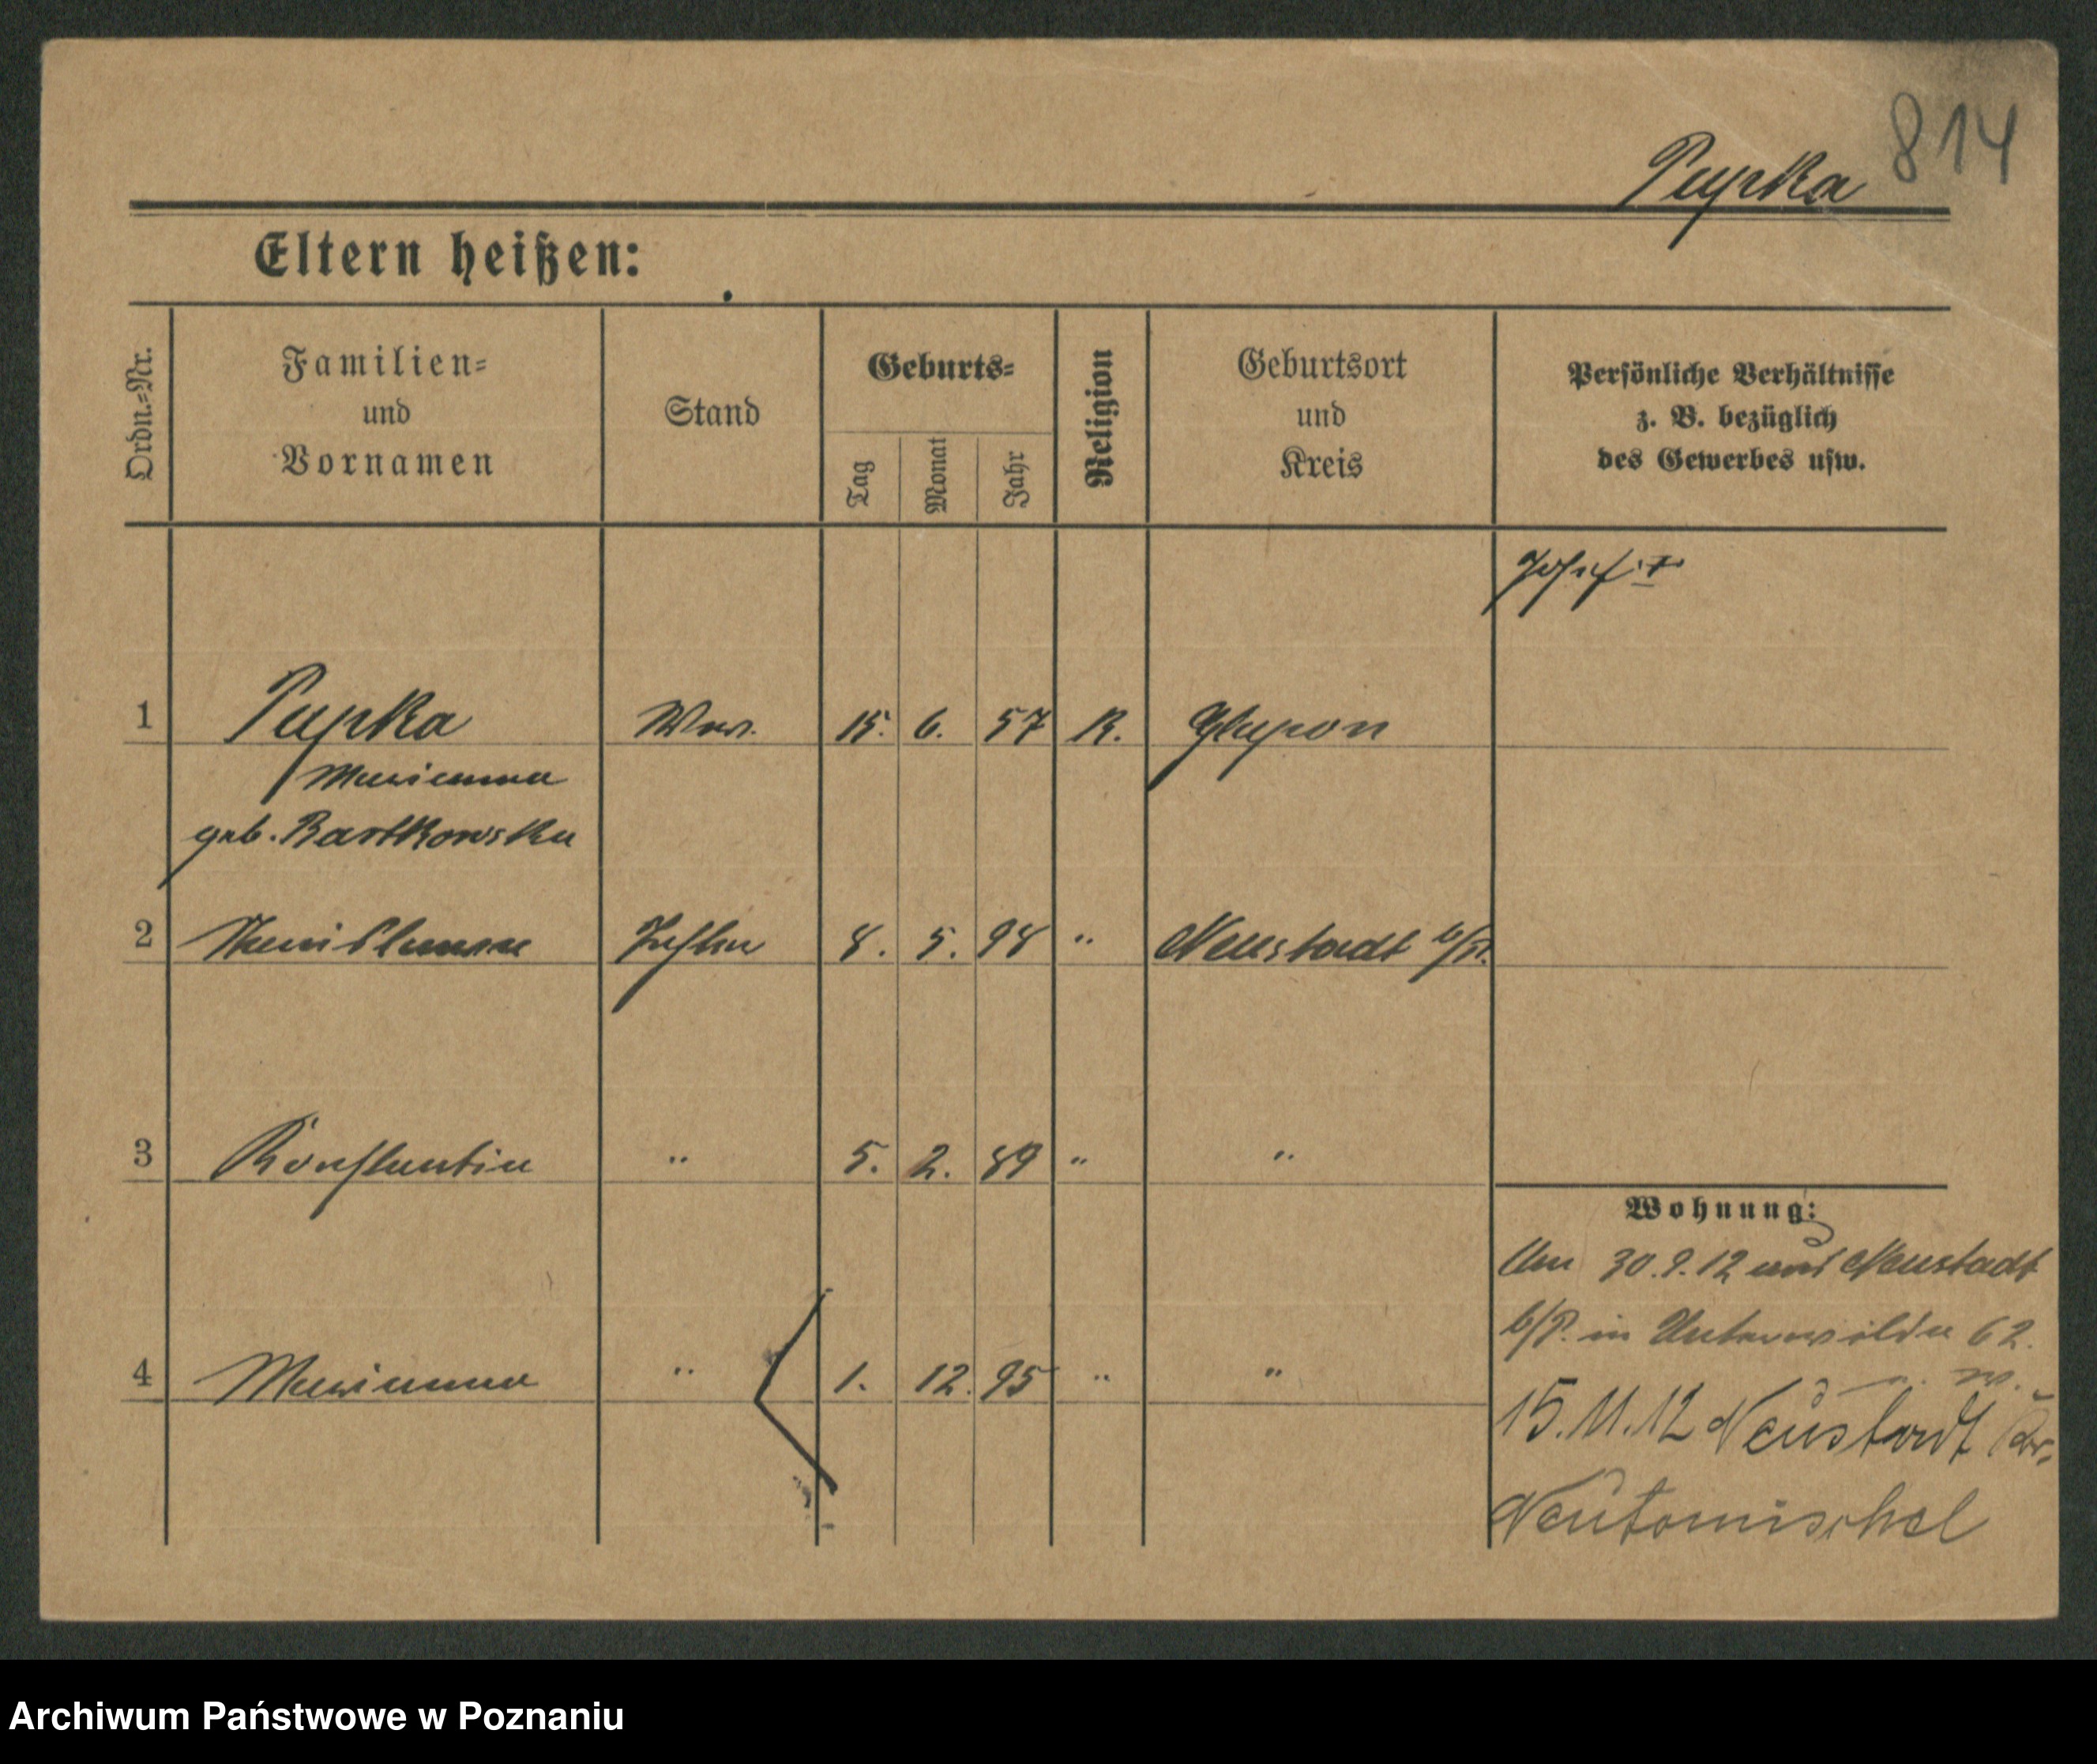 814
Pupka
Eltern heißen:
Ordn.=Nr.
Familien=
und
Vornamen
Stand
Geburts=
Tag
Monat
Jahr
Religion
Geburtsort
und
Kreis
Persönliche Verhältnisse
z. B. bezüglich
des Gewerbes usw.
Josef †
1 Pupka Wwe. 15. 6. 57 K. Glupon
Marianna
geb. Bartkowska
2 Stanislawa Tochter 8. 5. 98 " Neustadt b/P.
3 Konstantin " 5. 2. 89 " "
Wohnung:
Am 30.9.12 aus Neustadt
b/P. in Unterwilda 62.
4 Marianna " 1. 12. 95 " "
15.11.12 Neustadt Kr.
Neutomischel
Archiwum Państwowe w Poznaniu